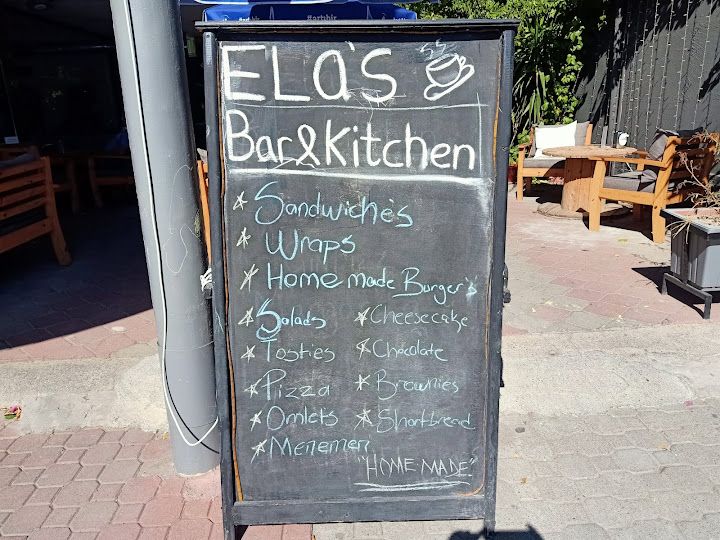 #artbir
ELa's
Bar & Kitchen
* Sandwiche's
* Wraps
* Home made Burger's
* Salads
* Tosties
* Pizza
* Omlets
* Menemen
* Cheesecake
* Chocolate
* Brownies
* Shortbread
"HOME-MADE"